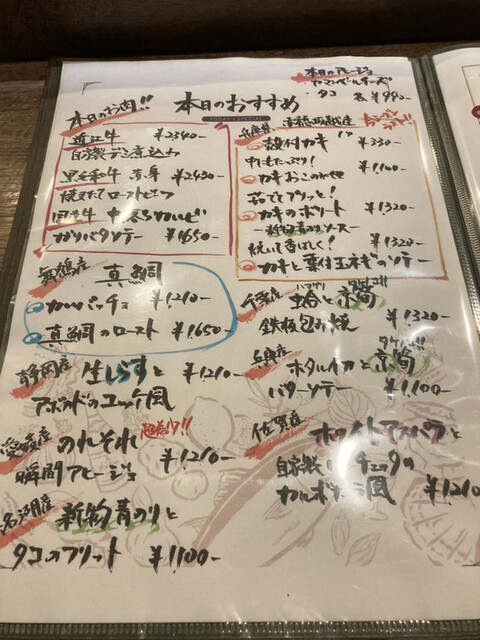 本日のアヒージョ
カマンベールチーズ
タコ 各¥990-
本日のおすすめ
TODAY'S SPECIAL
本日のお肉!!
近江牛 ¥2340-
自家製デミ煮込み
黒毛和牛 赤身 ¥2430-
焼きたてローストビーフ
国産牛 中落ちカルビ
ガリバタソテー ¥1650-
兵庫県 坂越産
殻付カキ 1ヶ ¥330-
中もたっぷり!
カキおこのみやき ¥1,100-
茹でてプリッと!
カキのフリット ¥1320-
焼いて香ばしく! ¥1320-
カキと葉付玉ネギのソテー
舞鶴産 真鯛
カルパッチョ ¥1210-
真鯛のロースト ¥1,650-
千葉産 ハマグリ
蛤と京筍
鉄板包み焼 ¥1320-
静岡産 生しらすと ¥1210-
アボカドのユッケ風
兵庫産 ホタルイカと京筍
バターソテー ¥1,100-
愛媛産 のれそれ
瞬間アヒージョ ¥1210-
佐賀産 ホワイトアスパラと
自家製パンチェッタの
カルボナーラ風 ¥1210
新物青のりと
タコのフリット ¥1100-